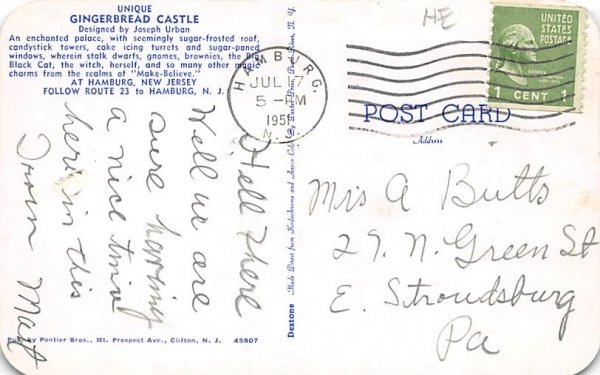 UNIQUE
GINGERBREAD CASTLE
Designed by Joseph Urban
An enchanted palace, with seemingly sugar-frosted roof,
candystick towers, cake icing turrets and sugar-paned
windows, wherein stalk dwarfs, gnomes, brownies, the Big
Black Cat, the witch, herself, and so many other magic
charms from the realms of "Make-Believe."
AT HAMBURG, NEW JERSEY
FOLLOW ROUTE 23 to HAMBURG, N. J.
Hell There
Well we are
sure having
a nice time
here in this
From Mat
Pub. by Pontier Bros., Mt. Prospect Ave., Clifton, N. J. 45807
Dextone Made Direct from Kodachrome and Ansco Color by Dexter Press, Pearl River, N. Y.
HE
HAMBURG.
JUL 7
5 - PM
195
N. J.
UNITED
STATES
POSTAGE
GEORGE
1 CENT 1
POST CARD
Address
Mrs A Butts
27. N. Green St
E. Stroudsburg
Pa